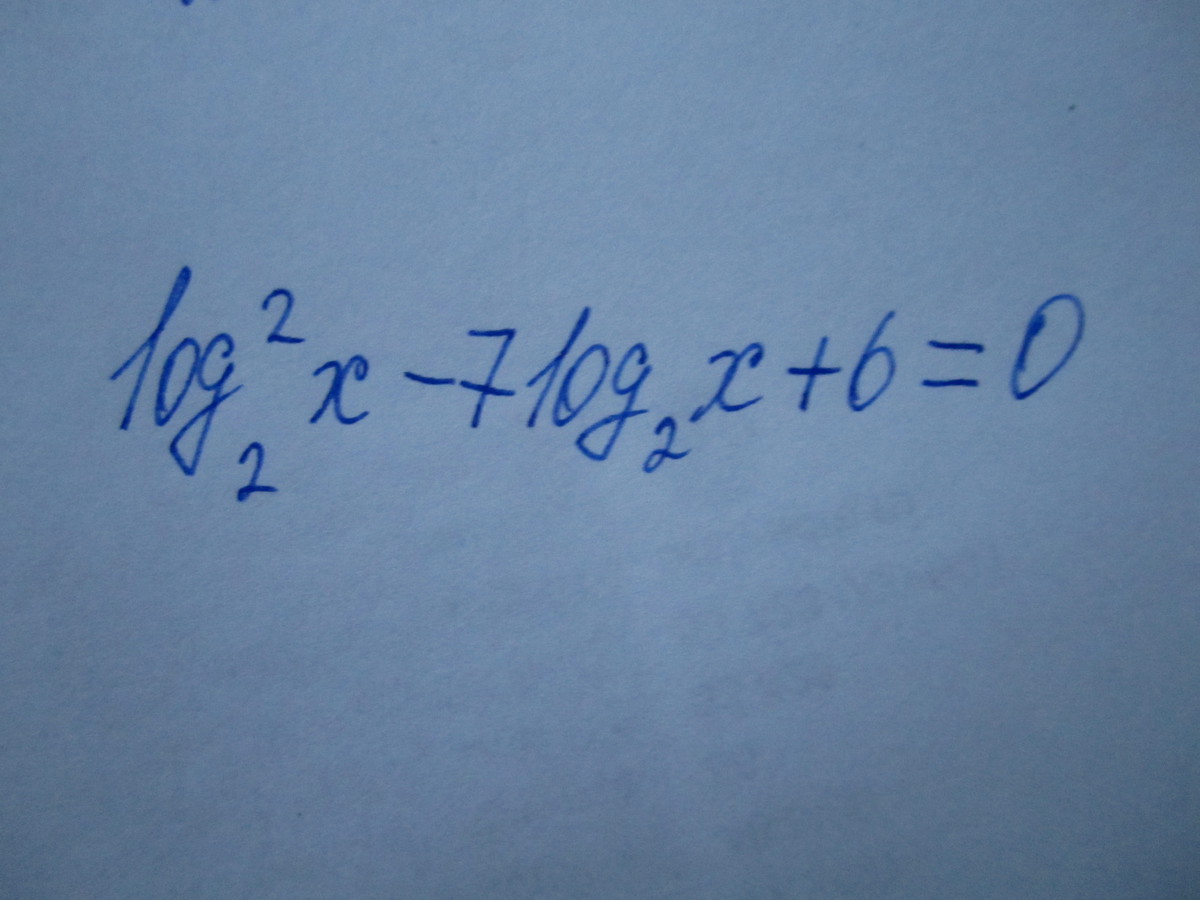 log₂²x − 7log₂x + 6 = 0